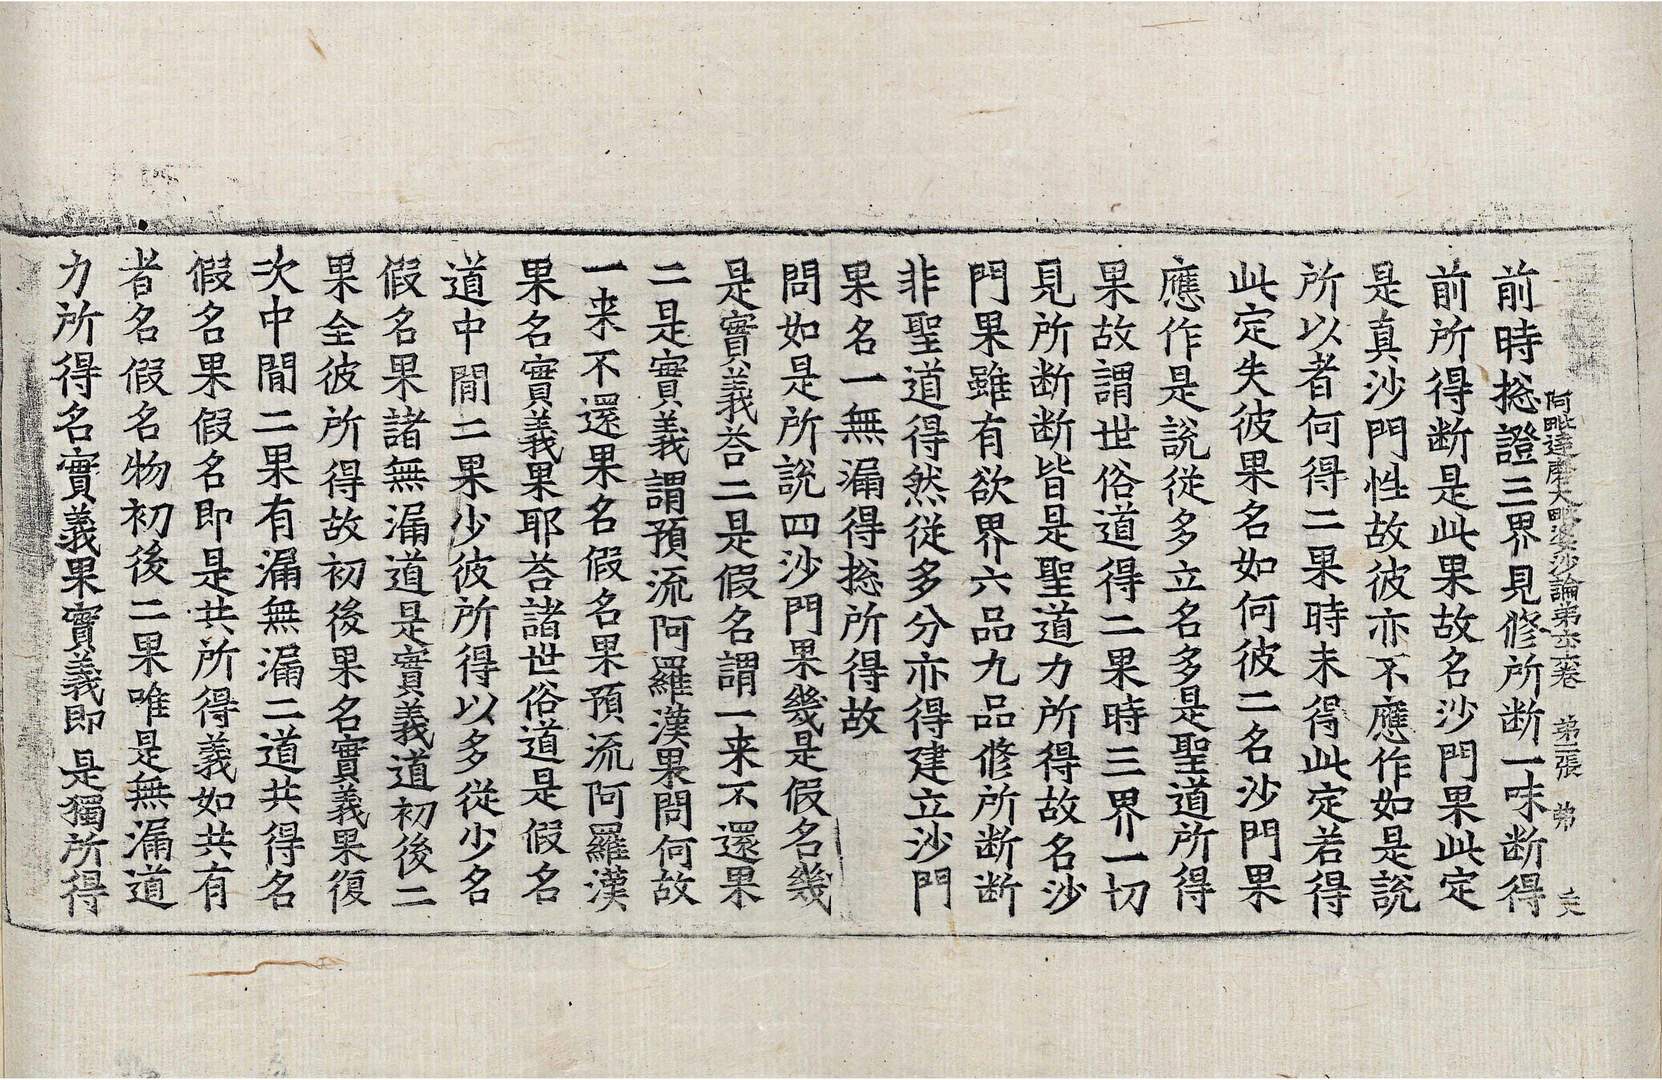 阿毗達磨大毗婆沙論第六六卷　第二張　弟
前時捴證三界見修所断一味断得
前所得断是此果故名沙門果此定
是真沙門性故彼亦不應作如是說
所以者何得二果時未得此定若得
此定失彼果名如何彼二名沙門果
應作是說從多立名多是聖道所得
果故謂世俗道得二果時三界一切
見所断断皆是聖道力所得故名沙
門果雖有欲界六品九品修所断断
非聖道得然從多分亦得建立沙門
果名一無漏得捴所得故
問如是所說四沙門果幾是假名幾
是實義荅二是假名謂一来不還果
二是實義謂預流阿羅漢果問何故
一来不還果名假名果預流阿羅漢
果名實義果耶荅諸世俗道是假名
道中間二果少彼所得以多從少名
假名果諸無漏道是實義道初後二
果全彼所得故初後果名實義果復
次中間二果有漏無漏二道共得名
假名果假名即是共所得義如共有
者名假名物初後二果唯是無漏道
力所得名實義果實義即是獨所得